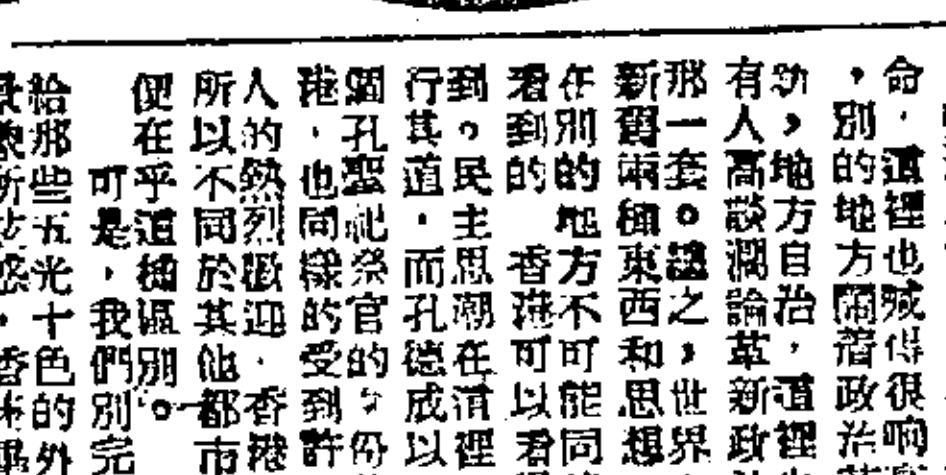 命，這裡也喊得很响
，別的地方鬧着政治
効，地方自治，這裡
有人高談濶論革新政
那一套。總之，世界
新舊兩種東西和思想
在別的地方不可能同
看到的　香港可以看
到。民主思潮在這裡
行其道，而孔德成以
個孔聖祀祭官的　份
港，也同樣的受到許
人的熱烈歡迎，香港
所以不同於其他　都市
便在乎這種區別。
可是，我們別完
給那些五光，十色的外